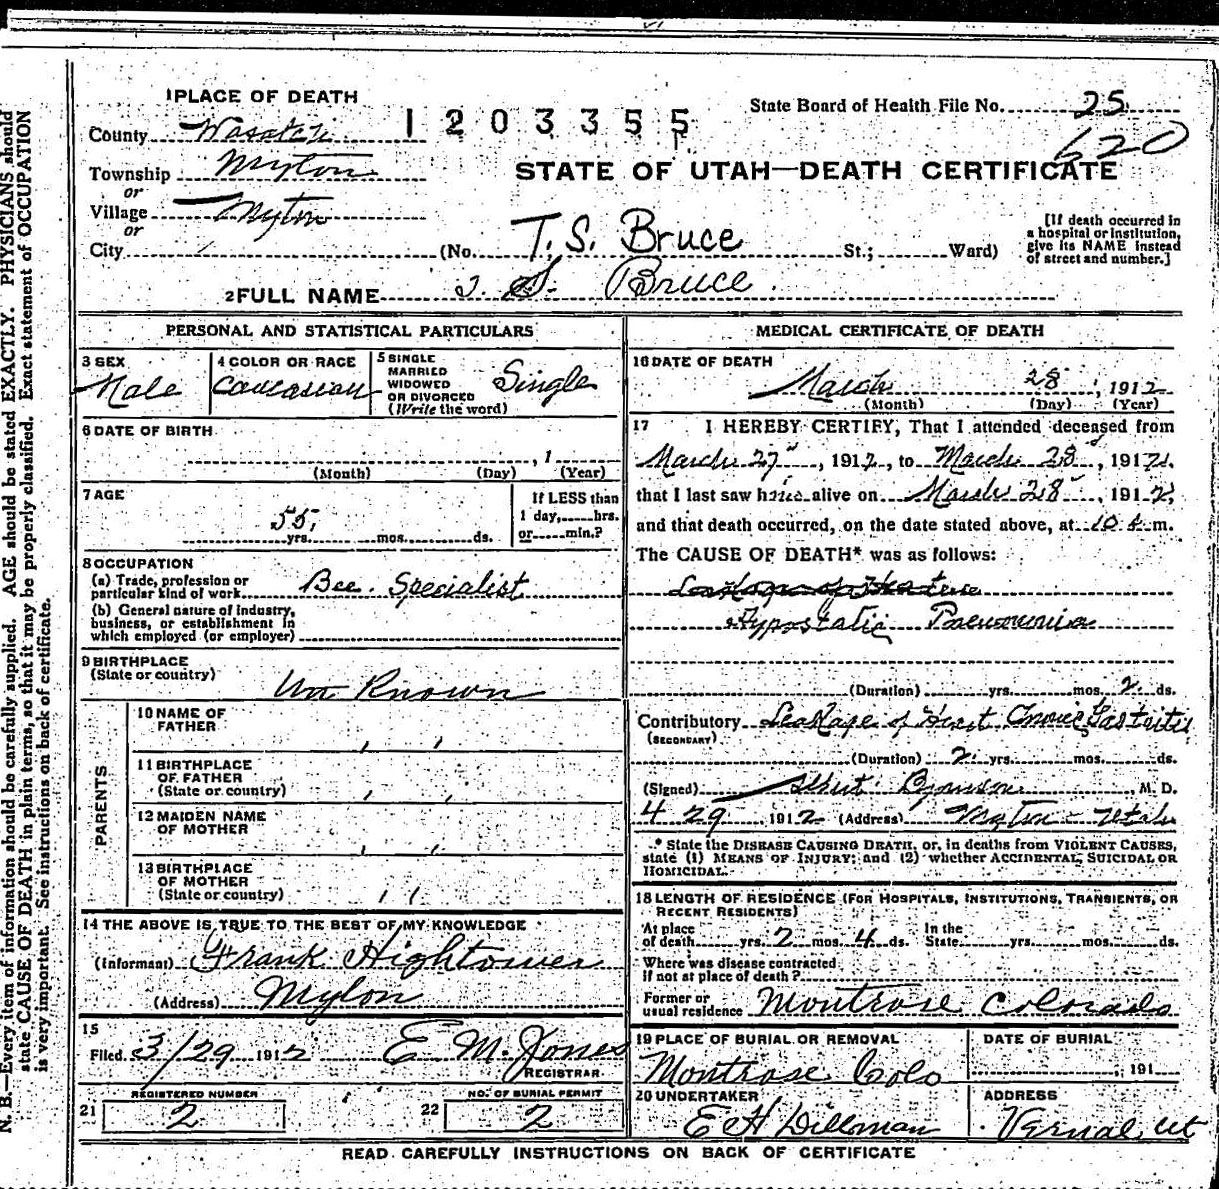 1 PLACE OF DEATH
County Wasatch
1203355
State Board of Health File No. 25
620
Township Myton
STATE OF UTAH—DEATH CERTIFICATE
or
Village Myton
or
City (No. T. S. Bruce St.; Ward)
[If death occurred in
a hospital or institution,
give its NAME instead
of street and number.]
2 FULL NAME T. S. Bruce
PERSONAL AND STATISTICAL PARTICULARS
3 SEX
Male
4 COLOR OR RACE
Caucasian
5 SINGLE
MARRIED
WIDOWED
OR DIVORCED
(Write the word)
Single
6 DATE OF BIRTH
, 1
(Month) (Day) (Year)
7 AGE
55
yrs. mos. ds.
If LESS than
1 day, hrs.
or min.?
8 OCCUPATION
(a) Trade, profession or
particular kind of work Bee Specialist
(b) General nature of industry,
business, or establishment in
which employed (or employer)
9 BIRTHPLACE
(State or country)
Un Known
PARENTS
10 NAME OF
FATHER
, ,
11 BIRTHPLACE
OF FATHER
(State or country) , ,
12 MAIDEN NAME
OF MOTHER
, ,
13 BIRTHPLACE
OF MOTHER
(State or country) , ,
14 THE ABOVE IS TRUE TO THE BEST OF MY KNOWLEDGE
(Informant) Frank Hightower
(Address) Myton
15
Filed 3/29 1912 E M. Jones
REGISTRAR
REGISTERED NUMBER
21 2
NO. OF BURIAL PERMIT
22 2
MEDICAL CERTIFICATE OF DEATH
16 DATE OF DEATH
March 28, 1912
(Month) (Day) (Year)
17 I HEREBY CERTIFY, That I attended deceased from
March 27, 1912, to March 28, 1912,
that I last saw him alive on March 28, 1912,
and that death occurred, on the date stated above, at 10 m.
The CAUSE OF DEATH* was as follows:
Hypostatic Pneumonia
(Duration) yrs. mos. 2 ds.
Contributory Leakage of Heart Cronic Gastritis
(SECONDARY)
(Duration) 2 yrs. mos. ds.
(Signed) M. D.
4 29 1912 (Address) Myton - Utah
* State the DISEASE CAUSING DEATH, or, in deaths from VIOLENT CAUSES,
state (1) MEANS OF INJURY; and (2) whether ACCIDENTAL, SUICIDAL OR
HOMICIDAL.
18 LENGTH OF RESIDENCE (FOR HOSPITALS, INSTITUTIONS, TRANSIENTS, OR
RECENT RESIDENTS)
At place
of death yrs. 2 mos. 4 ds. In the
State yrs. mos. ds.
Where was disease contracted
if not at place of death?
Former or
usual residence Montrose Colorado
19 PLACE OF BURIAL OR REMOVAL
Montrose Colo
DATE OF BURIAL
, 191
20 UNDERTAKER
E H Dillman
ADDRESS
Vernal, Ut
READ CAREFULLY INSTRUCTIONS ON BACK OF CERTIFICATE
N. B.—Every item of information should be carefully supplied. AGE should be stated EXACTLY. PHYSICIANS should
state CAUSE OF DEATH in plain terms, so that it may be properly classified. Exact statement of OCCUPATION
is very important. See instructions on back of certificate.